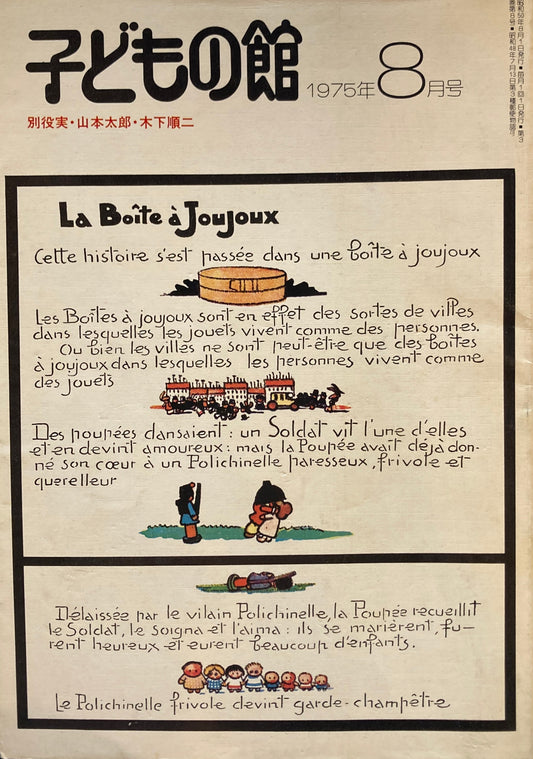 子どもの館
1975年8月号
別役実・山本太郎・木下順二
昭和50年8月1日発行■毎月1回1日発行■第3
巻第8号■昭和48年7月13日第3種郵便物認可
La Boîte à Joujoux
Cette histoire s'est passée dans une boîte à joujoux
Les Boîtes à joujoux sont en effet des sortes de villes
dans lesquelles les jouets vivent comme des personnes.
Ou bien les villes ne sont peut-être que des boîtes
à joujoux dans lesquelles les personnes vivent comme
des jouets
Des poupées dansaient : un Soldat vit l'une d'elles
et en devint amoureux : mais la Poupée avait déjà don-
né son cœur à un Polichinelle paresseux, frivole et
querelleur
Délaissée par le vilain Polichinelle, la Poupée recueillit
le Soldat, le soigna et l'aima : ils se marièrent, fu-
rent heureux et eurent beaucoup d'enfants.
Le Polichinelle frivole devint garde-champêtre